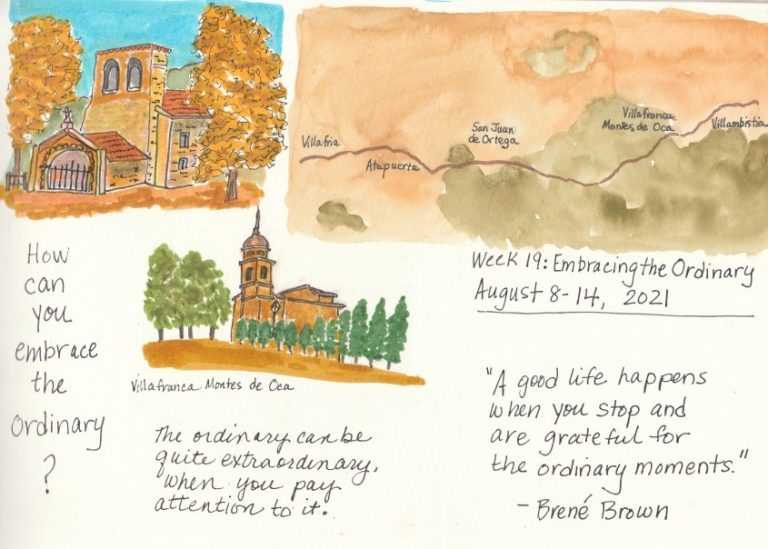 Villafria
Atapuerta
San Juan
de Ortega
Villafranca
Montes de Oca
Villambistia
Week 19: Embracing the Ordinary
August 8-14, 2021
How
can
you
embrace
the
Ordinary
?
Villafranca Montes de Oca
The ordinary can be
quite extraordinary,
when you pay
attention to it.
"A good life happens
when you stop and
are grateful for
the ordinary moments."
- Brené Brown